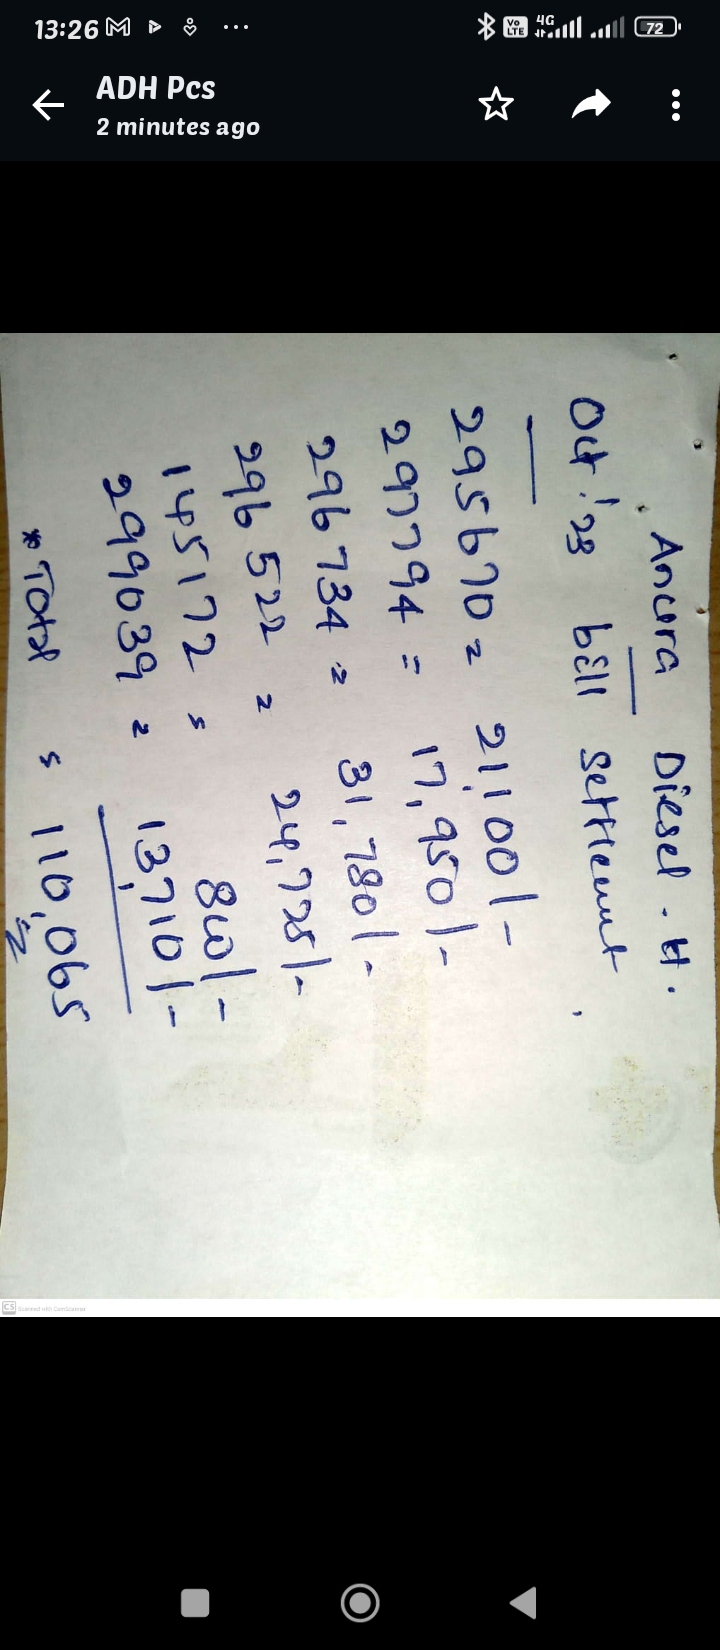 13:26
Vo LTE 4G 72
ADH Pcs
2 minutes ago
Ancura Diesel . H .
Oct '23 bill settlement .
295670 = 21,100/-
297794 = 17,950/-
296734 = 31,780/-
296522 = 24,725/-
145172 = 800/-
299039 = 13,710/-
*Total = 110,065
CS Scanned with CamScanner